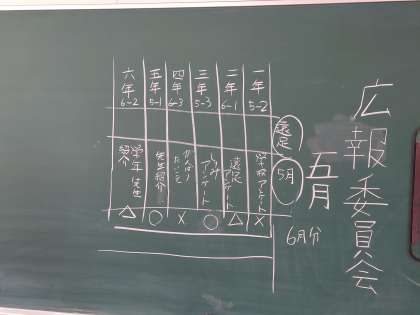 広報委員会
五月
遠足
5月
6月分
一年
5-2
学校アンケート
×
二年
6-1
遠足アンケート
△
三年
5-3
アンケート
○
四年
6-3
がんばり
たいこと
×
五年
5-1
先生紹介
○
六年
6-2
学年 先生
紹介
△